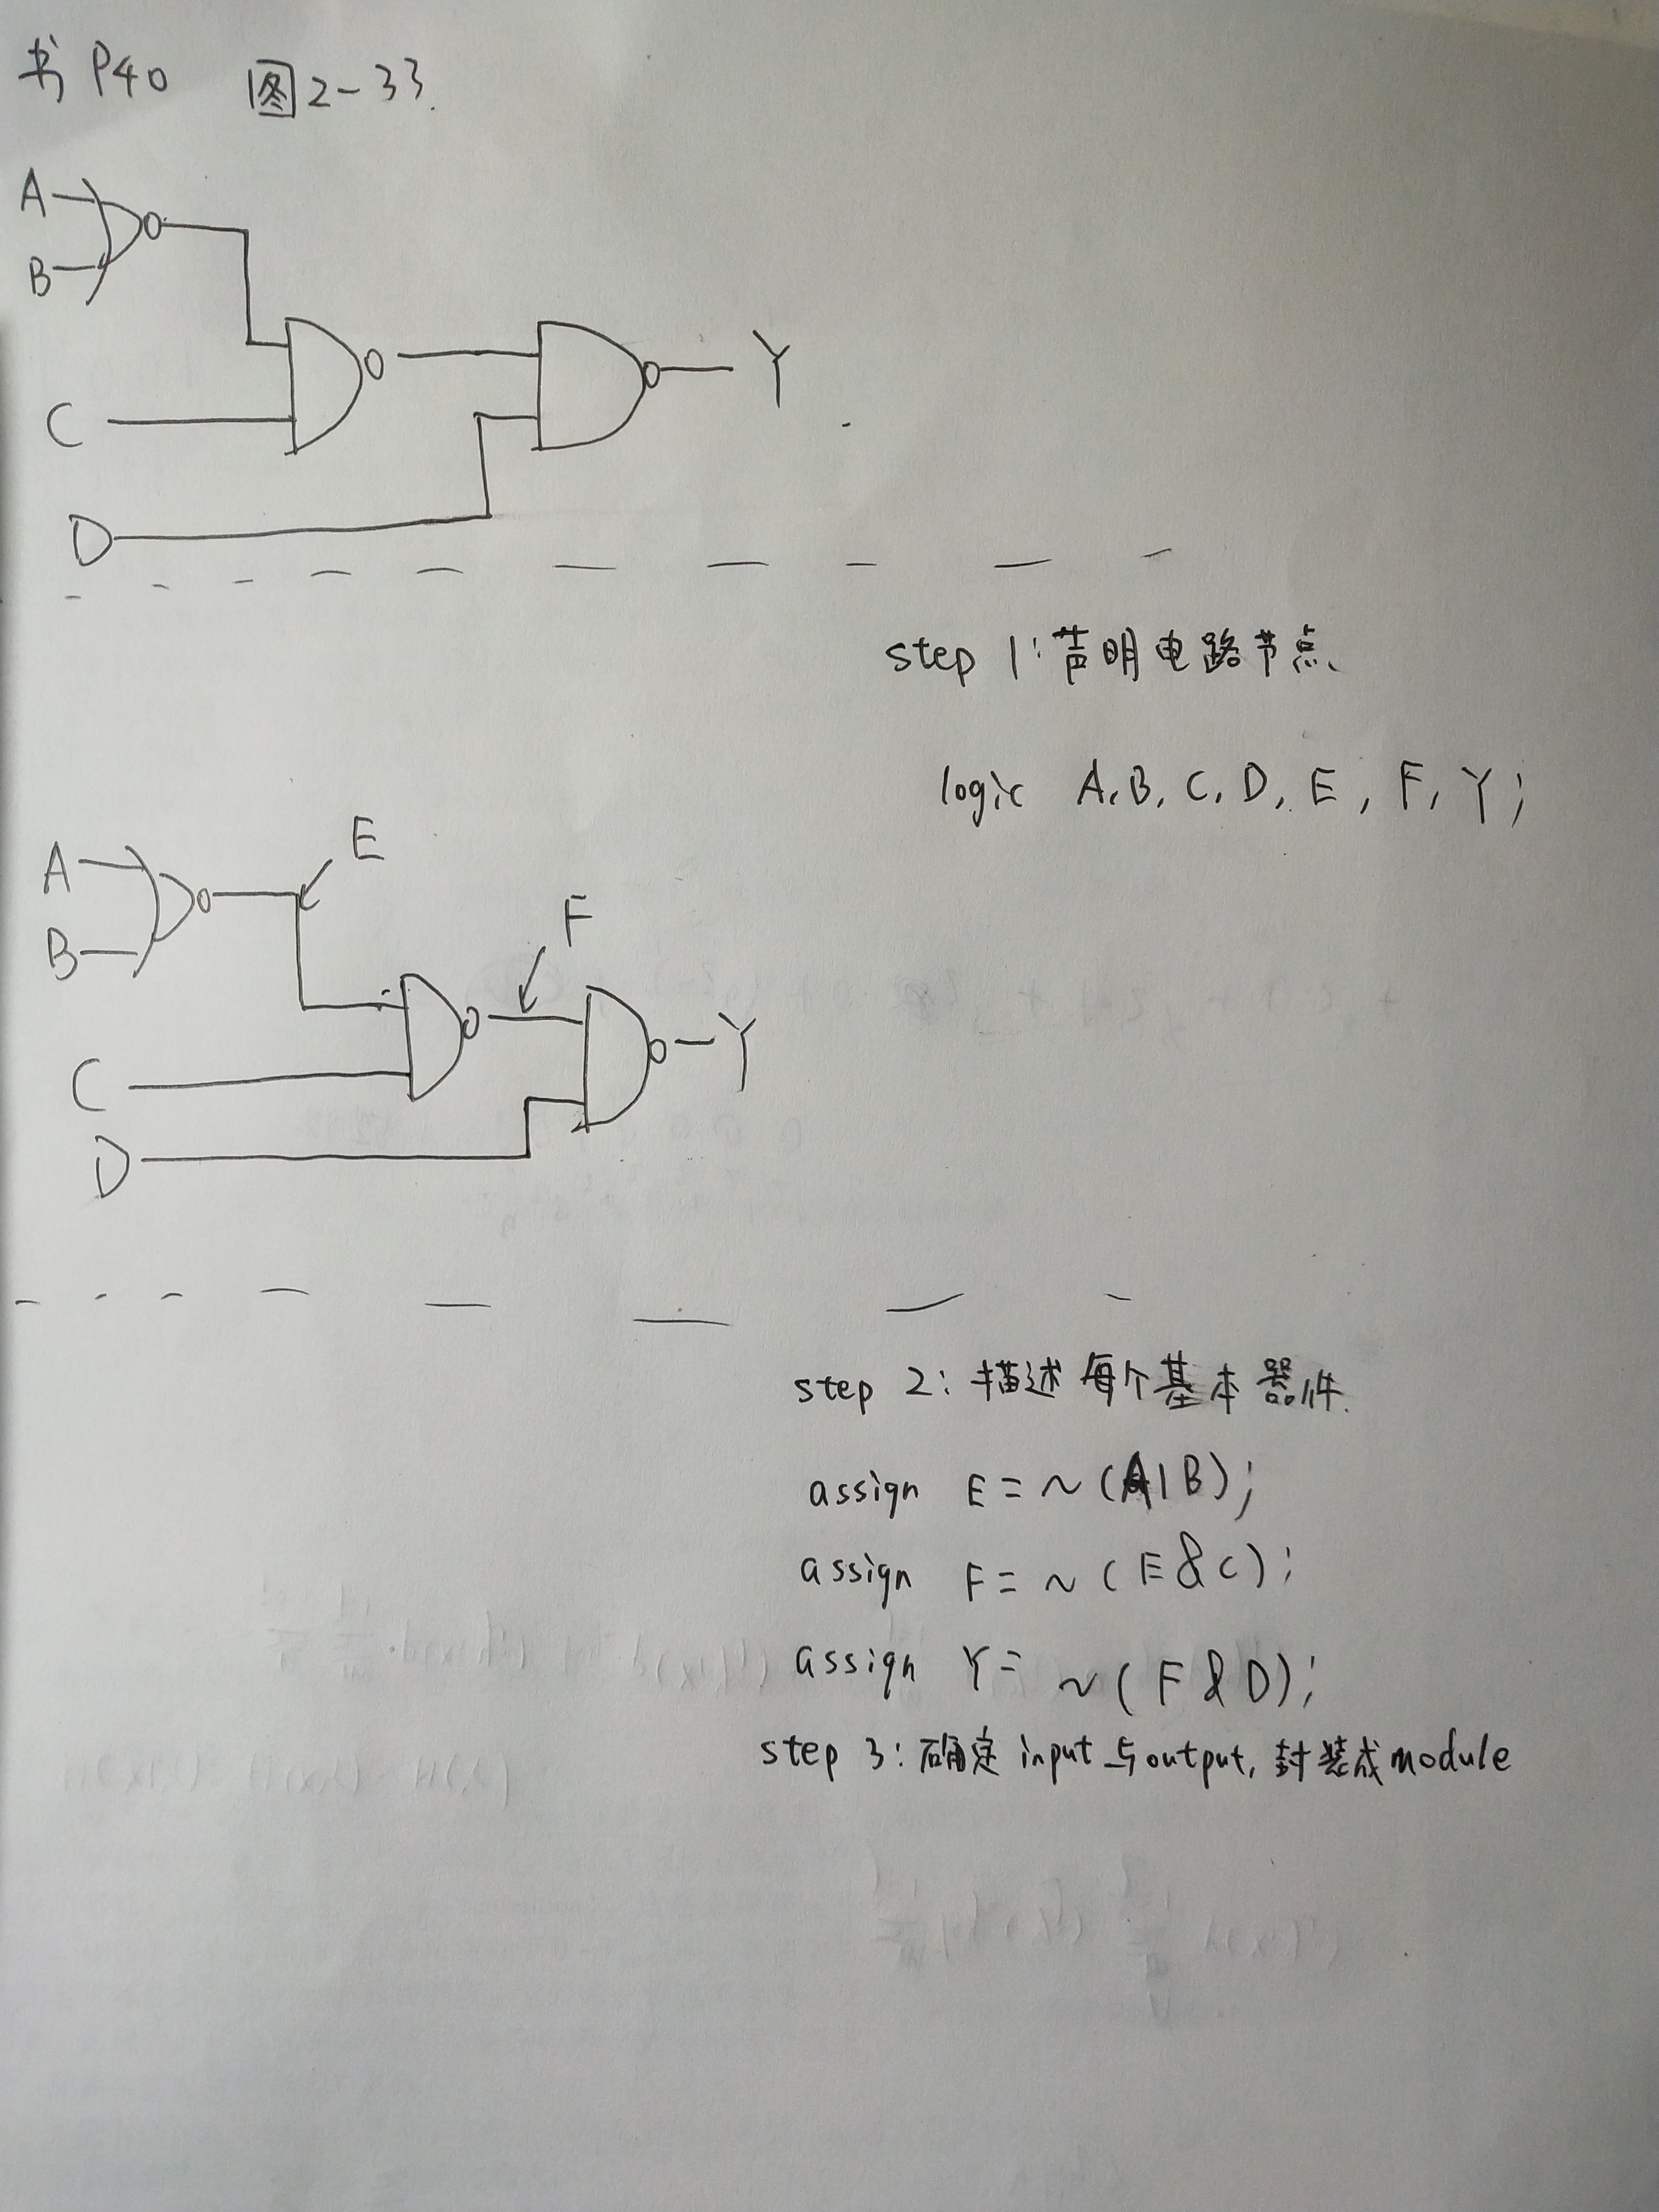 书 P40 图2-33.
A
B
C
D
Y
step 1: 声明电路节点
logic A, B, C, D, E, F, Y;
E
A
B
F
C
D
Y
step 2: 描述每个基本器件.
assign E = ~(A|B);
assign F = ~(E&C);
assign Y = ~(F&D);
step 3: 确定input与output, 封装成module